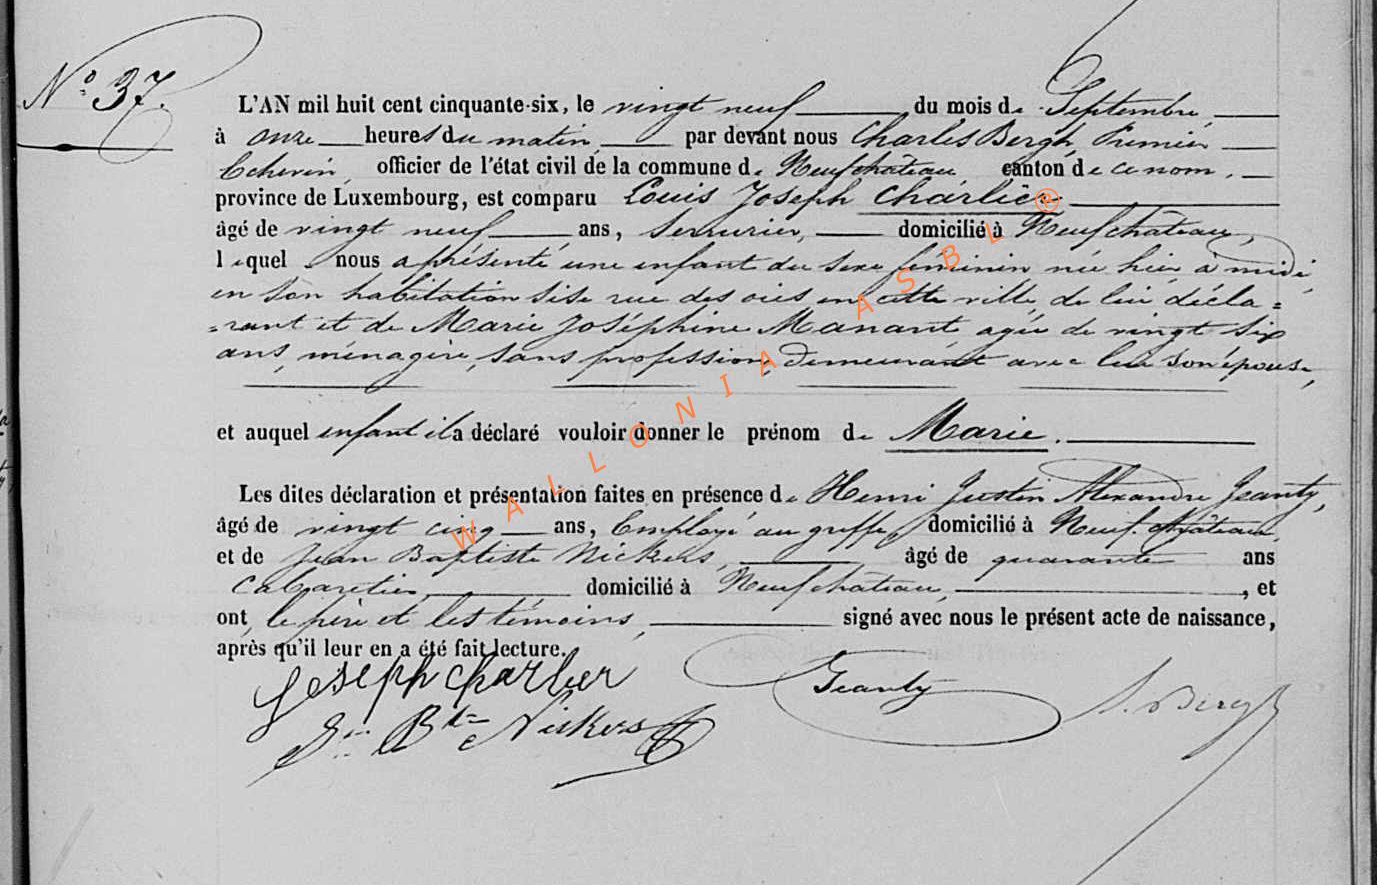 N° 37.
L'AN mil huit cent cinquante-six, le vingt neuf du mois de Septembre
à onze heures du matin, par devant nous Charles Bergh, Premier
Echevin, officier de l'état civil de la commune de Neufchateau canton de ce nom,
province de Luxembourg, est comparu Louis Joseph Charlier
âgé de vingt neuf ans, Serrurier, domicilié à Neufchateau,
lequel nous a présenté une enfant du sexe féminin née hier à midi
en son habitation sise rue des oies en cette ville, de lui décla=
=rant et de Marie Joséphine Manant, agée de vingt six
ans, ménagère, sans profession, demeurant avec lui son épouse,
et auquel enfant il a déclaré vouloir donner le prénom de Marie.
Les dites déclaration et présentation faites en présence de Henri Justin Alexandre Jeanty,
âgé de vingt cinq ans, Employé au greffe, domicilié à Neufchâteau,
et de Jean Baptiste Nickers, âgé de quarante ans
Cabaretier, domicilié à Neufchateau, et
ont, le père et les témoins, signé avec nous le présent acte de naissance,
après qu'il leur en a été fait lecture.
Joseph Charlier
Jeanty
Bergh
Jn Bte Nickers
WALLONIA ASBL ®